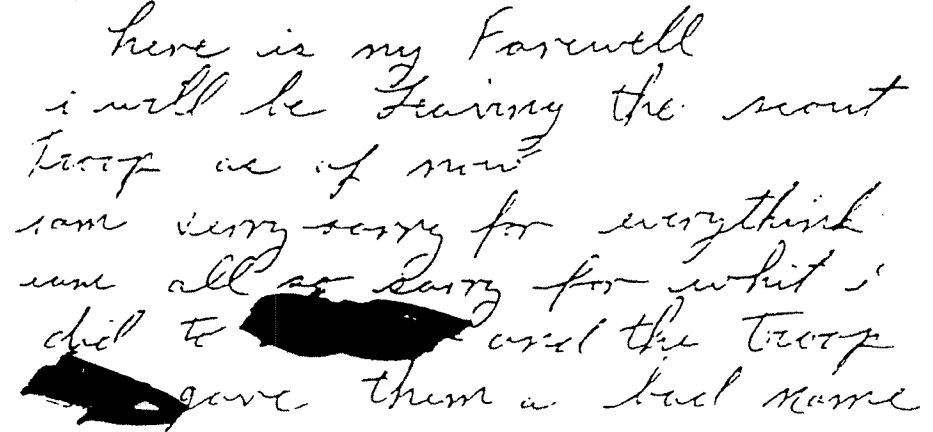 here is my Farewell
i will be Leaving the scout
Troop as of now
iam verry sorry for everythink
iam all so sorry for whit i
did to and the Troop
gave them a bad name